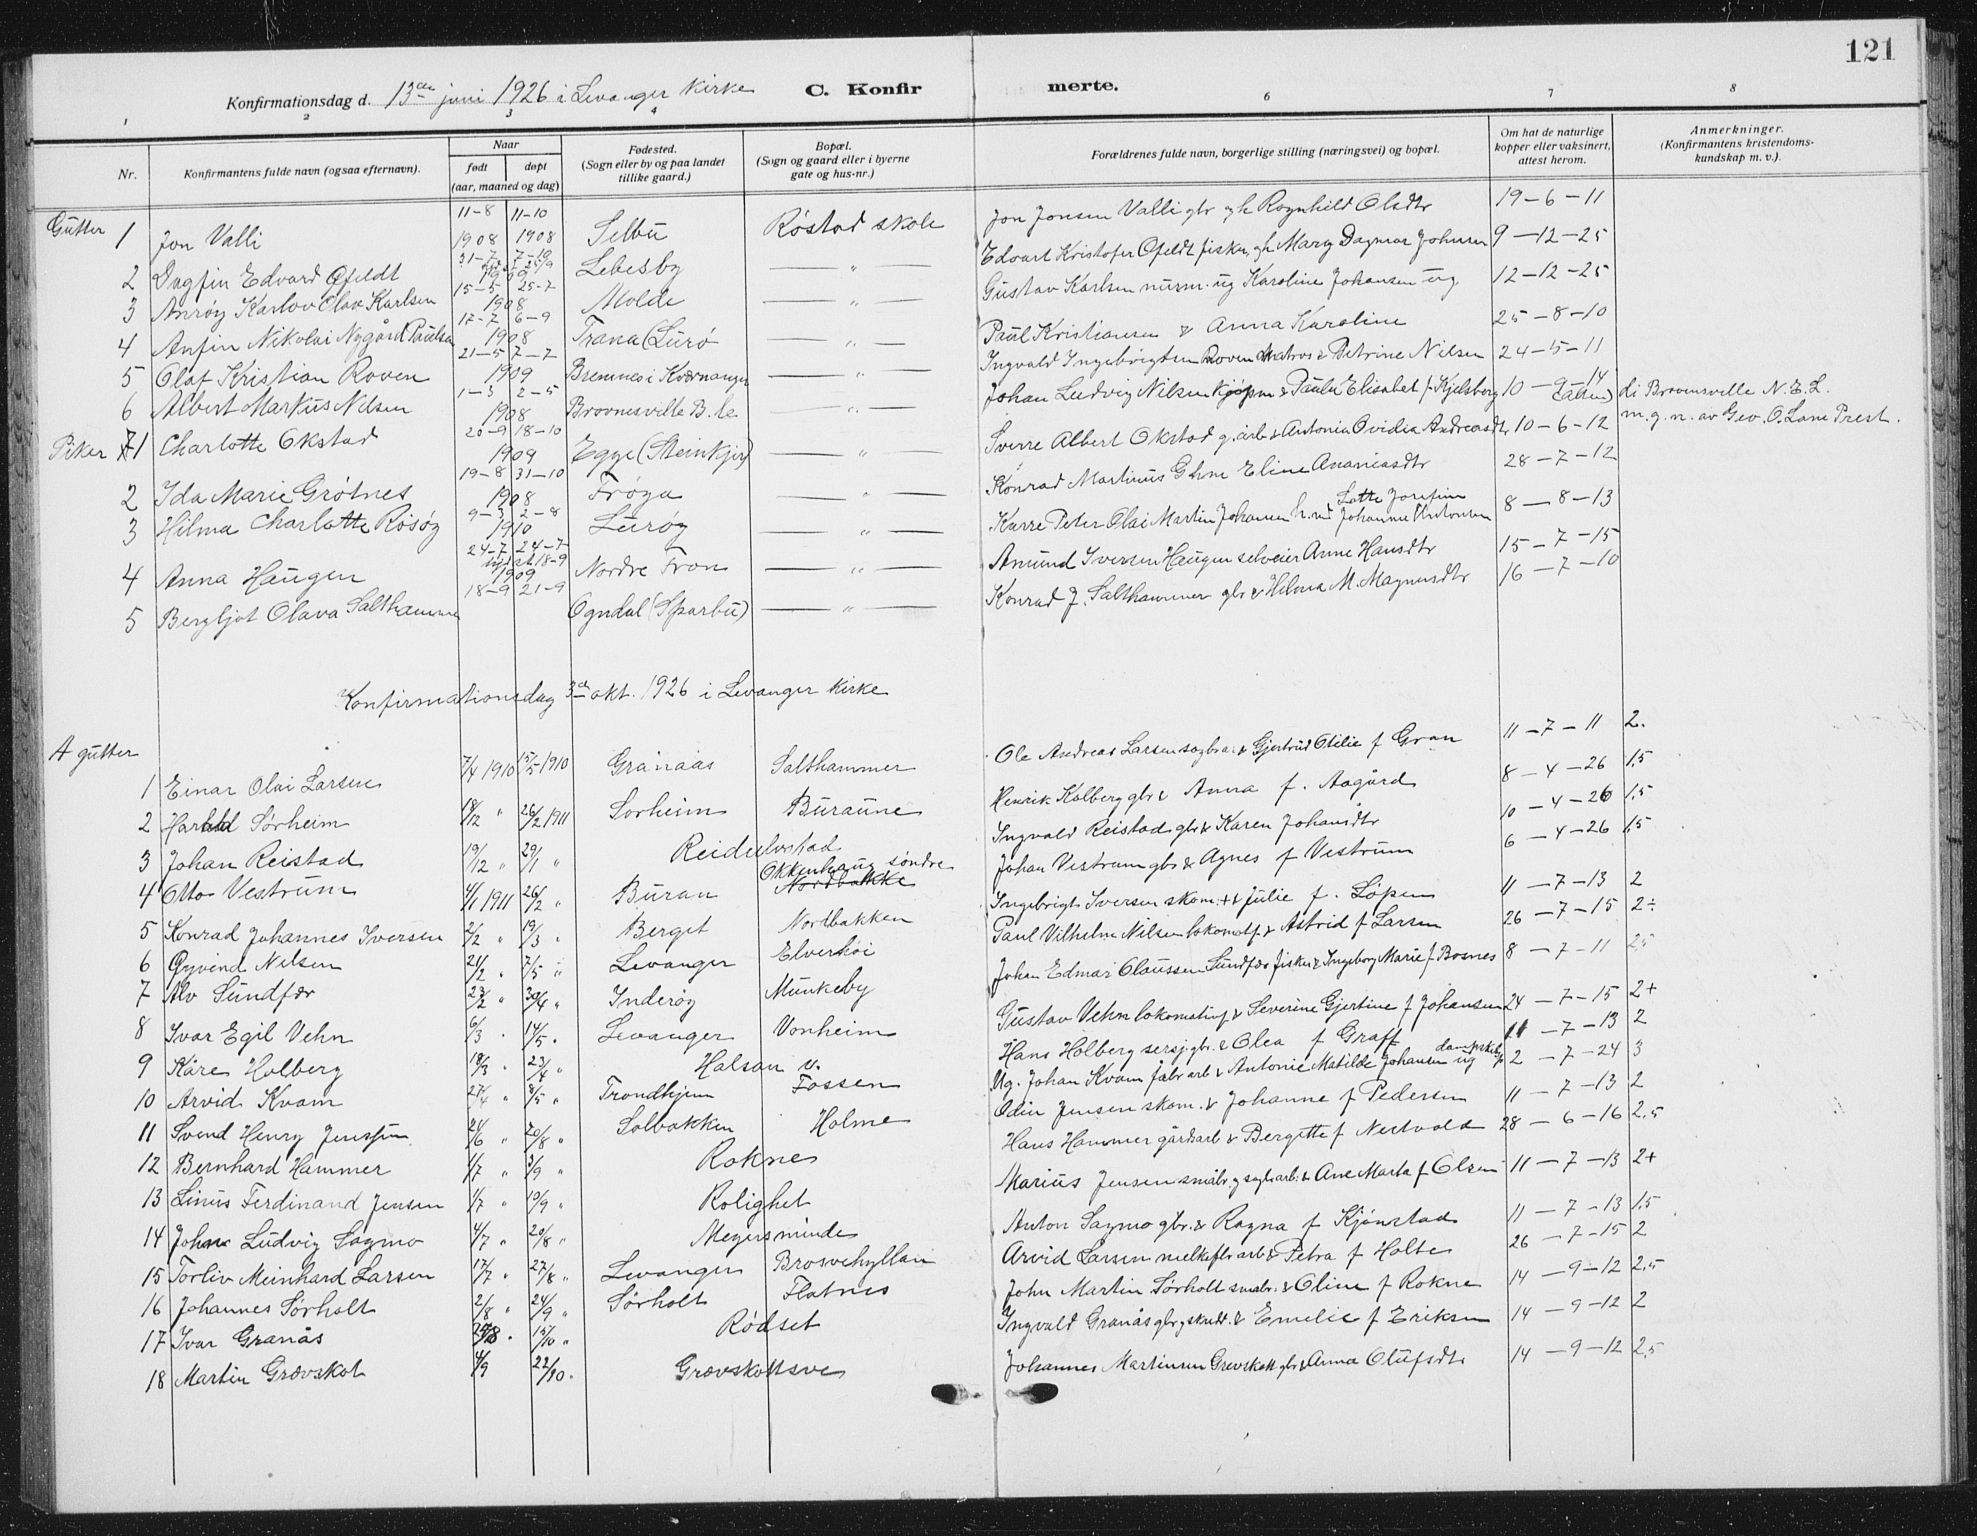 121
Konfirmationsdag d. 13de juni 1926 i Levanger kirke C. Konfir merte.
1 2 3 4 6 7 8
Nr. Konfirmantens fulde navn (ogsaa efternavn). Naar født døpt (aar, maaned og dag) Fødested. (Sogn eller by og paa landet tillike gaard.) Bopæl. (Sogn og gaard eller i byerne gate og hus-nr.) Forældrenes fulde navn, borgerlige stilling (næringsvei) og bopæl. Om hat de naturlige kopper eller vaksinert, attest herom. Anmerkninger. (Konfirmantens kristendoms-kundskap m. v.).
Gutter 1 Jon Valli 11-8 1908 11-10 1908 Selbu Røstad skole Jon Jonsen Valli gbr og h Ragnhild Olsdtr 19-6-11
2 Dagfin Edvard Ofeldt 31-7 Lebesby — " — Edvart Kristofer Ofeldt fisker gh Mary Dagmar Johnsen 9-12-25
3 Anrøy Karlov Olav Karlsen 15-5 25-7 1908 Molde — " — Gustav Karlsen nurm. ug Karoline Johansen ug 12-12-25
4 Anfin Nikolai Nygård Paulsen 17-7 6-9 1908 Træna (Lurø — " — Paul Kristiansen & Anna Karoline 25-8-10
5 Olaf Kristian Roven 21-5 7-7 1909 Bremnes i Kværnanger — " — Ingvald Ingebrigtsen Roven Matros & Petrine Nilsen 24-5-11
6 Albert Markus Nilsen 1-3 2-5 1908 Brovnesville B. la — " — Johan Ludvig Nilsen kjøpm & Paula Elisabet f. Kjelsberg 10-9-14 (atten) di Brovnsville N. E. L.
m. g. n. av Gev. O. Lane Prest.
Piker 1 Charlotte Okstad 20-9 18-10 1909 Egge (Steinkjer) — " — Sverre Albert Okstad g. arb & Antonia Ovidia Andreasdtr 10-6-12
2 Ida Marie Grøtnes 19-8 31-10 1908 Frøya — " — Konrad Martinus G hm Eline Ananiasdtr 28-7-12
3 Hilma Charlotte Røsøy 9-3 2-8 1910 Lurøy — " — Karre Peter Olai Martin Johansen h. ind Lotte Josefine Johanne Antonsen 8-8-13
4 Anna Haugen 24-7 24-7 18-9 1909 Nordre Fron — " — Amund Iversen Haugen selveier Anne Hansdtr 15-7-15
5 Bergljot Olava Salthammer 18-9 21-9 Ogndal (Sparbu) — " — Konrad J. Salthammer gbr & Hilma M. Magnusdtr 16-7-10
Konfirmationsdag 3de okt. 1926 i Levanger kirke
A gutter
1 Einar Olai Larsen 7/4 1910 15/5 1910 Granaas Salthammer Ole Andreas Larsen sagbr a. & Gjertrud Otilie f Gran 11-7-11 2.
2 Harald Sørheim 18/12 " 26/2 1911 Sorheim Buraune Henrik Kolberg gbr & Anna f. Aagård 8-4-26 1.5
3 Johan Reistad 19/12 " 29/1 " Reidulvstad Ingvald Reistad gbr & Karen Johansdtr 10-4-26 1.5
4 Otto Vestrum 4/1 1911 26/2 " Buran Okkenhaug søndre Nordbakke Johan Vestrum gbr & Agnes f Vestrum 6-4-26 1.5
5 Konrad Johannes Iversen 2/2 " 19/3 " Berget Nordbakken Ingebrigt Iversen skom. + & Julie f. Løpen 11-7-13 2
6 Øyvind Nilsen 21/2 " 7/5 " Levanger Elverhøi Paul Vilhelm Nilsen lokomotf & Astrid f Larsen 26-7-15 2÷
7 Alv Sundfær 23/2 " 30/4 " Inderøy Munkeby Johan Edmar Claussen Sundfær fisker & Ingeborg Marie f. Bosnes 8-7-11 2.5
8 Ivar Egil Vehn 6/3 " 14/5 " Levanger Vonheim Gustav Vehn lokomotivf & Severine Gjertine f Johansen 24-7-15 2+
9 Kåre Holberg 18/3 " 23/4 " Halsan v. Hans Holberg sersj. gbr. & Olea f Graff 11-7-13 2
10 Arvid Kvam 27/4 " 8/5 " Trondhjem Fossen Ug. Johan Kvam fabr arb & Antonie Matilde Johansen ug 2-7-24 3
11 Svend Henry Jenssen 24/6 " 20/8 " Solbakken Holme Odin Jensen skom. & Johanne f Pedersen 11-7-13 2
12 Bernhard Hammer 1/7 " 3/9 " Rokne Hans Hammer gårdsarb & Bergitte f Nestvold 28-6-16 2.5
13 Linus Ferdinand Jensen 1/7 " 10/9 " Rolighet Marius Jensen småbr. g sagb. arb. & Ane Marta f Olsen 11-7-13 2+
14 Johan Ludvig Sagmo 4/7 " 20/8 " Meyersminde Anton Sagmo gbr. & Ragna f Kjønstad 11-7-13 1.5
15 Torliv Meinhard Larsen 17/7 " 27/8 " Levanger Brosvehyllan Arvid Larsen melkefbr arb & Petra f Holte 26-7-15 2
16 Johannes Sørholt 2/8 " 24/9 " Sørholt Flatnes John Martin Sørholt småbr. & Oline f Rokne 14-9-12 2.5
17 Ivar Granås 15/10 " Rødset Ingvald Granås gbr g skredd. & Emelie f Eriksen 14-9-12 2
18 Martin Grøvskot 4/9 22/10 " Grævskottsve Johannes Martinsen Grevskott gbr & Anna Olufsdtr 14-9-12 2.5